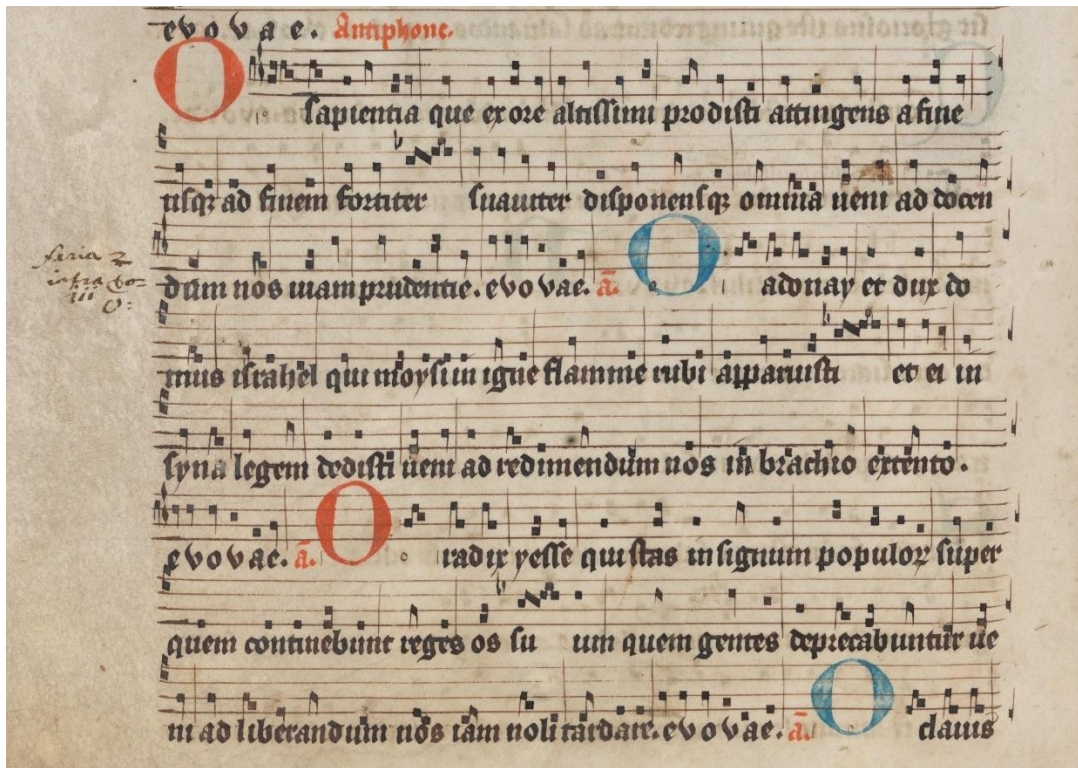 evovae. Antiphone.
O sapientia que ex ore altissimi prodisti attingens a fine
usqz ad finem fortiter suauiter disponensqz omnia ueni ad docen
dum nos uiam prudentie. evovae. a. O adonay et dux do
feria 2
iii
O:
mus israhel qui moysi in igne flamme rubi apparuisti et ei in
syna legem dedisti ueni ad redimendum nos in brachio extento.
evovae. a. O radix yesse qui stas in signum populoꝝ super
quem continebunt reges os suum quem gentes deprecabuntur ue
ni ad liberandum nos iam noli tardare. evovae. a. O clauis